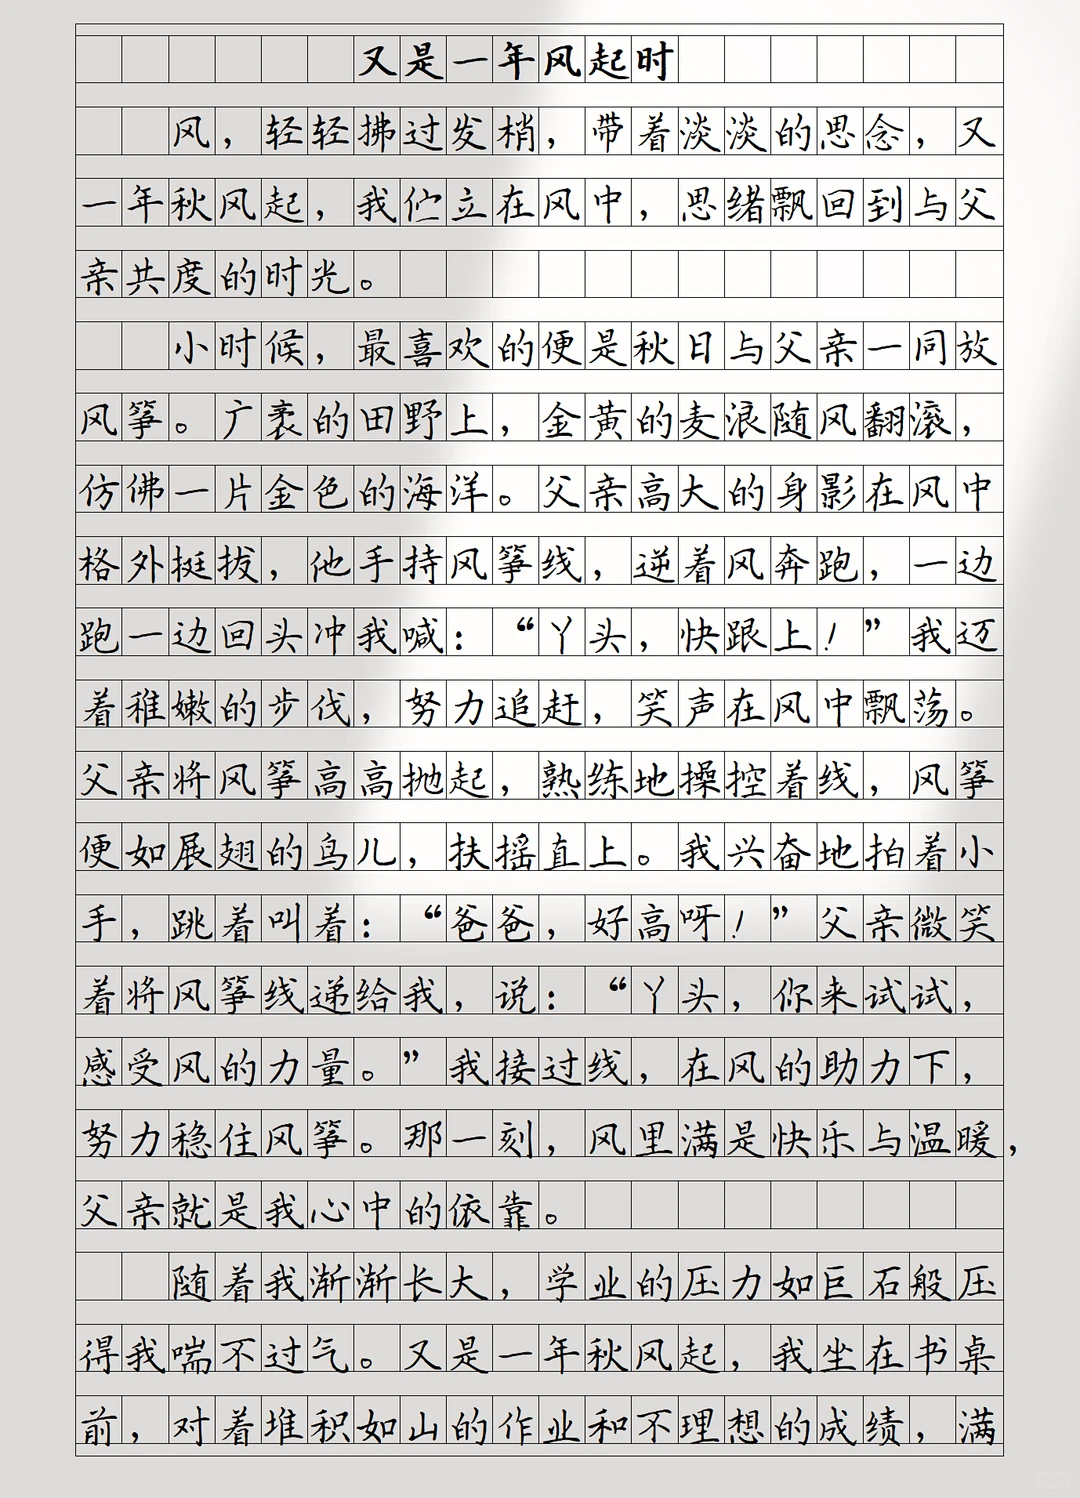 又是一年风起时
风，轻轻拂过发梢，带着淡淡的思念，又
一年秋风起，我伫立在风中，思绪飘回到与父
亲共度的时光。
小时候，最喜欢的便是秋日与父亲一同放
风筝。广袤的田野上，金黄的麦浪随风翻滚，
仿佛一片金色的海洋。父亲高大的身影在风中
格外挺拔，他手持风筝线，逆着风奔跑，一边
跑一边回头冲我喊：“丫头，快跟上！”我迈
着稚嫩的步伐，努力追赶，笑声在风中飘荡。
父亲将风筝高高抛起，熟练地操控着线，风筝
便如展翅的鸟儿，扶摇直上。我兴奋地拍着小
手，跳着叫着：“爸爸，好高呀！”父亲微笑
着将风筝线递给我，说：“丫头，你来试试，
感受风的力量。”我接过线，在风的助力下，
努力稳住风筝。那一刻，风里满是快乐与温暖，
父亲就是我心中的依靠。
随着我渐渐长大，学业的压力如巨石般压
得我喘不过气。又是一年秋风起，我坐在书桌
前，对着堆积如山的作业和不理想的成绩，满